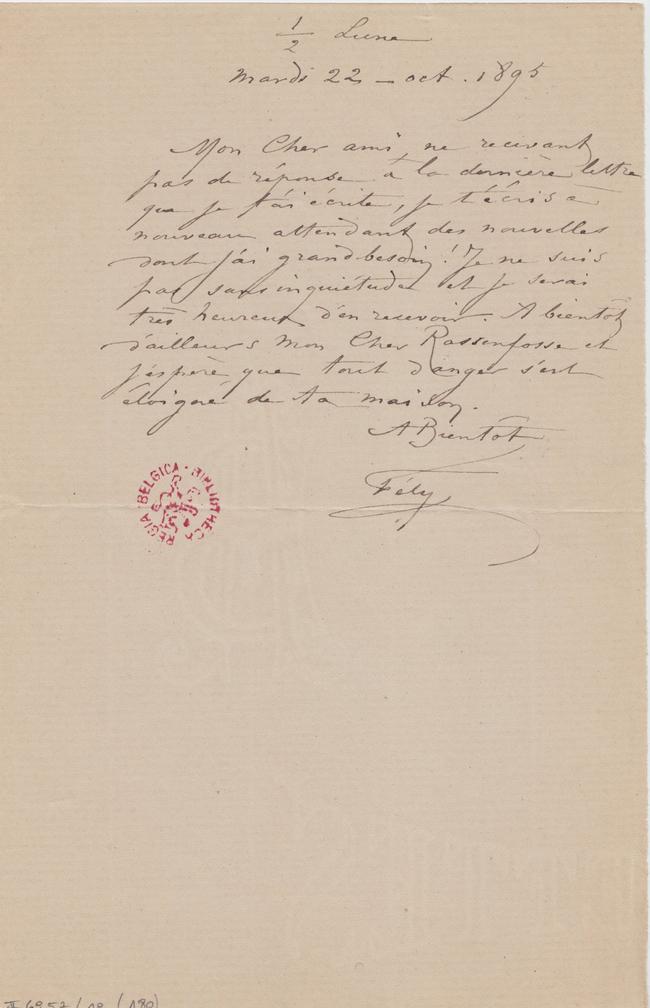 1/2 Lune
Mardi 22 - oct. 1895
Mon Cher ami, ne recevant
pas de réponse à la dernière lettre
que je t'ai écrite, je t'écris à
nouveau attendant des nouvelles
dont j'ai grand besoin! Je ne suis
pas sans inquiétude et je serai
très heureux d'en recevoir. A bientôt
d'ailleurs Mon Cher Rassenfosse et
j'espère que tout danger s'est
éloigné de ta maison.
A Bientôt
Fély
BIBLIOTHECA REGIA BELGICA
II 6957/19 (180)